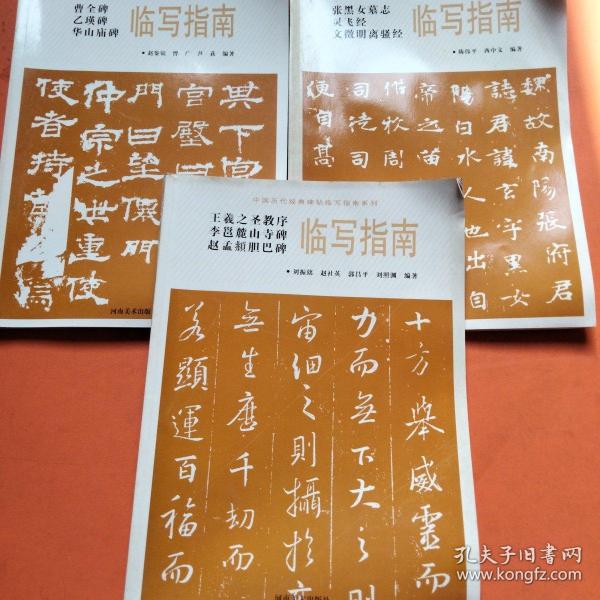 曹全碑
乙瑛碑
华山庙碑
临写指南
编著
其下宫
官壂
門曰望僊門
仲宗之世重使
使者持
河南美术出版
张黑女墓志
灵飞经
文徵明离骚经
临写指南
陈伟平 西中文 编著
魏故南陽張府君
誌君諱玄字黑女
陽白水人也出自
帝之苗
偕牧周
司徒司
便自高
中国历代经典碑帖临写指南系列
王羲之圣教序
李邕麓山寺碑
赵孟頫胆巴碑
临写指南
刘振铭 赵社英 郭昌平 刘照渊 编著
十方舉威靈而
力而無下大之則
宙細之則攝於
無生歷千劫而
若顯運百福而
河南美术出版社
孔夫子旧书网
www.kongfz.com